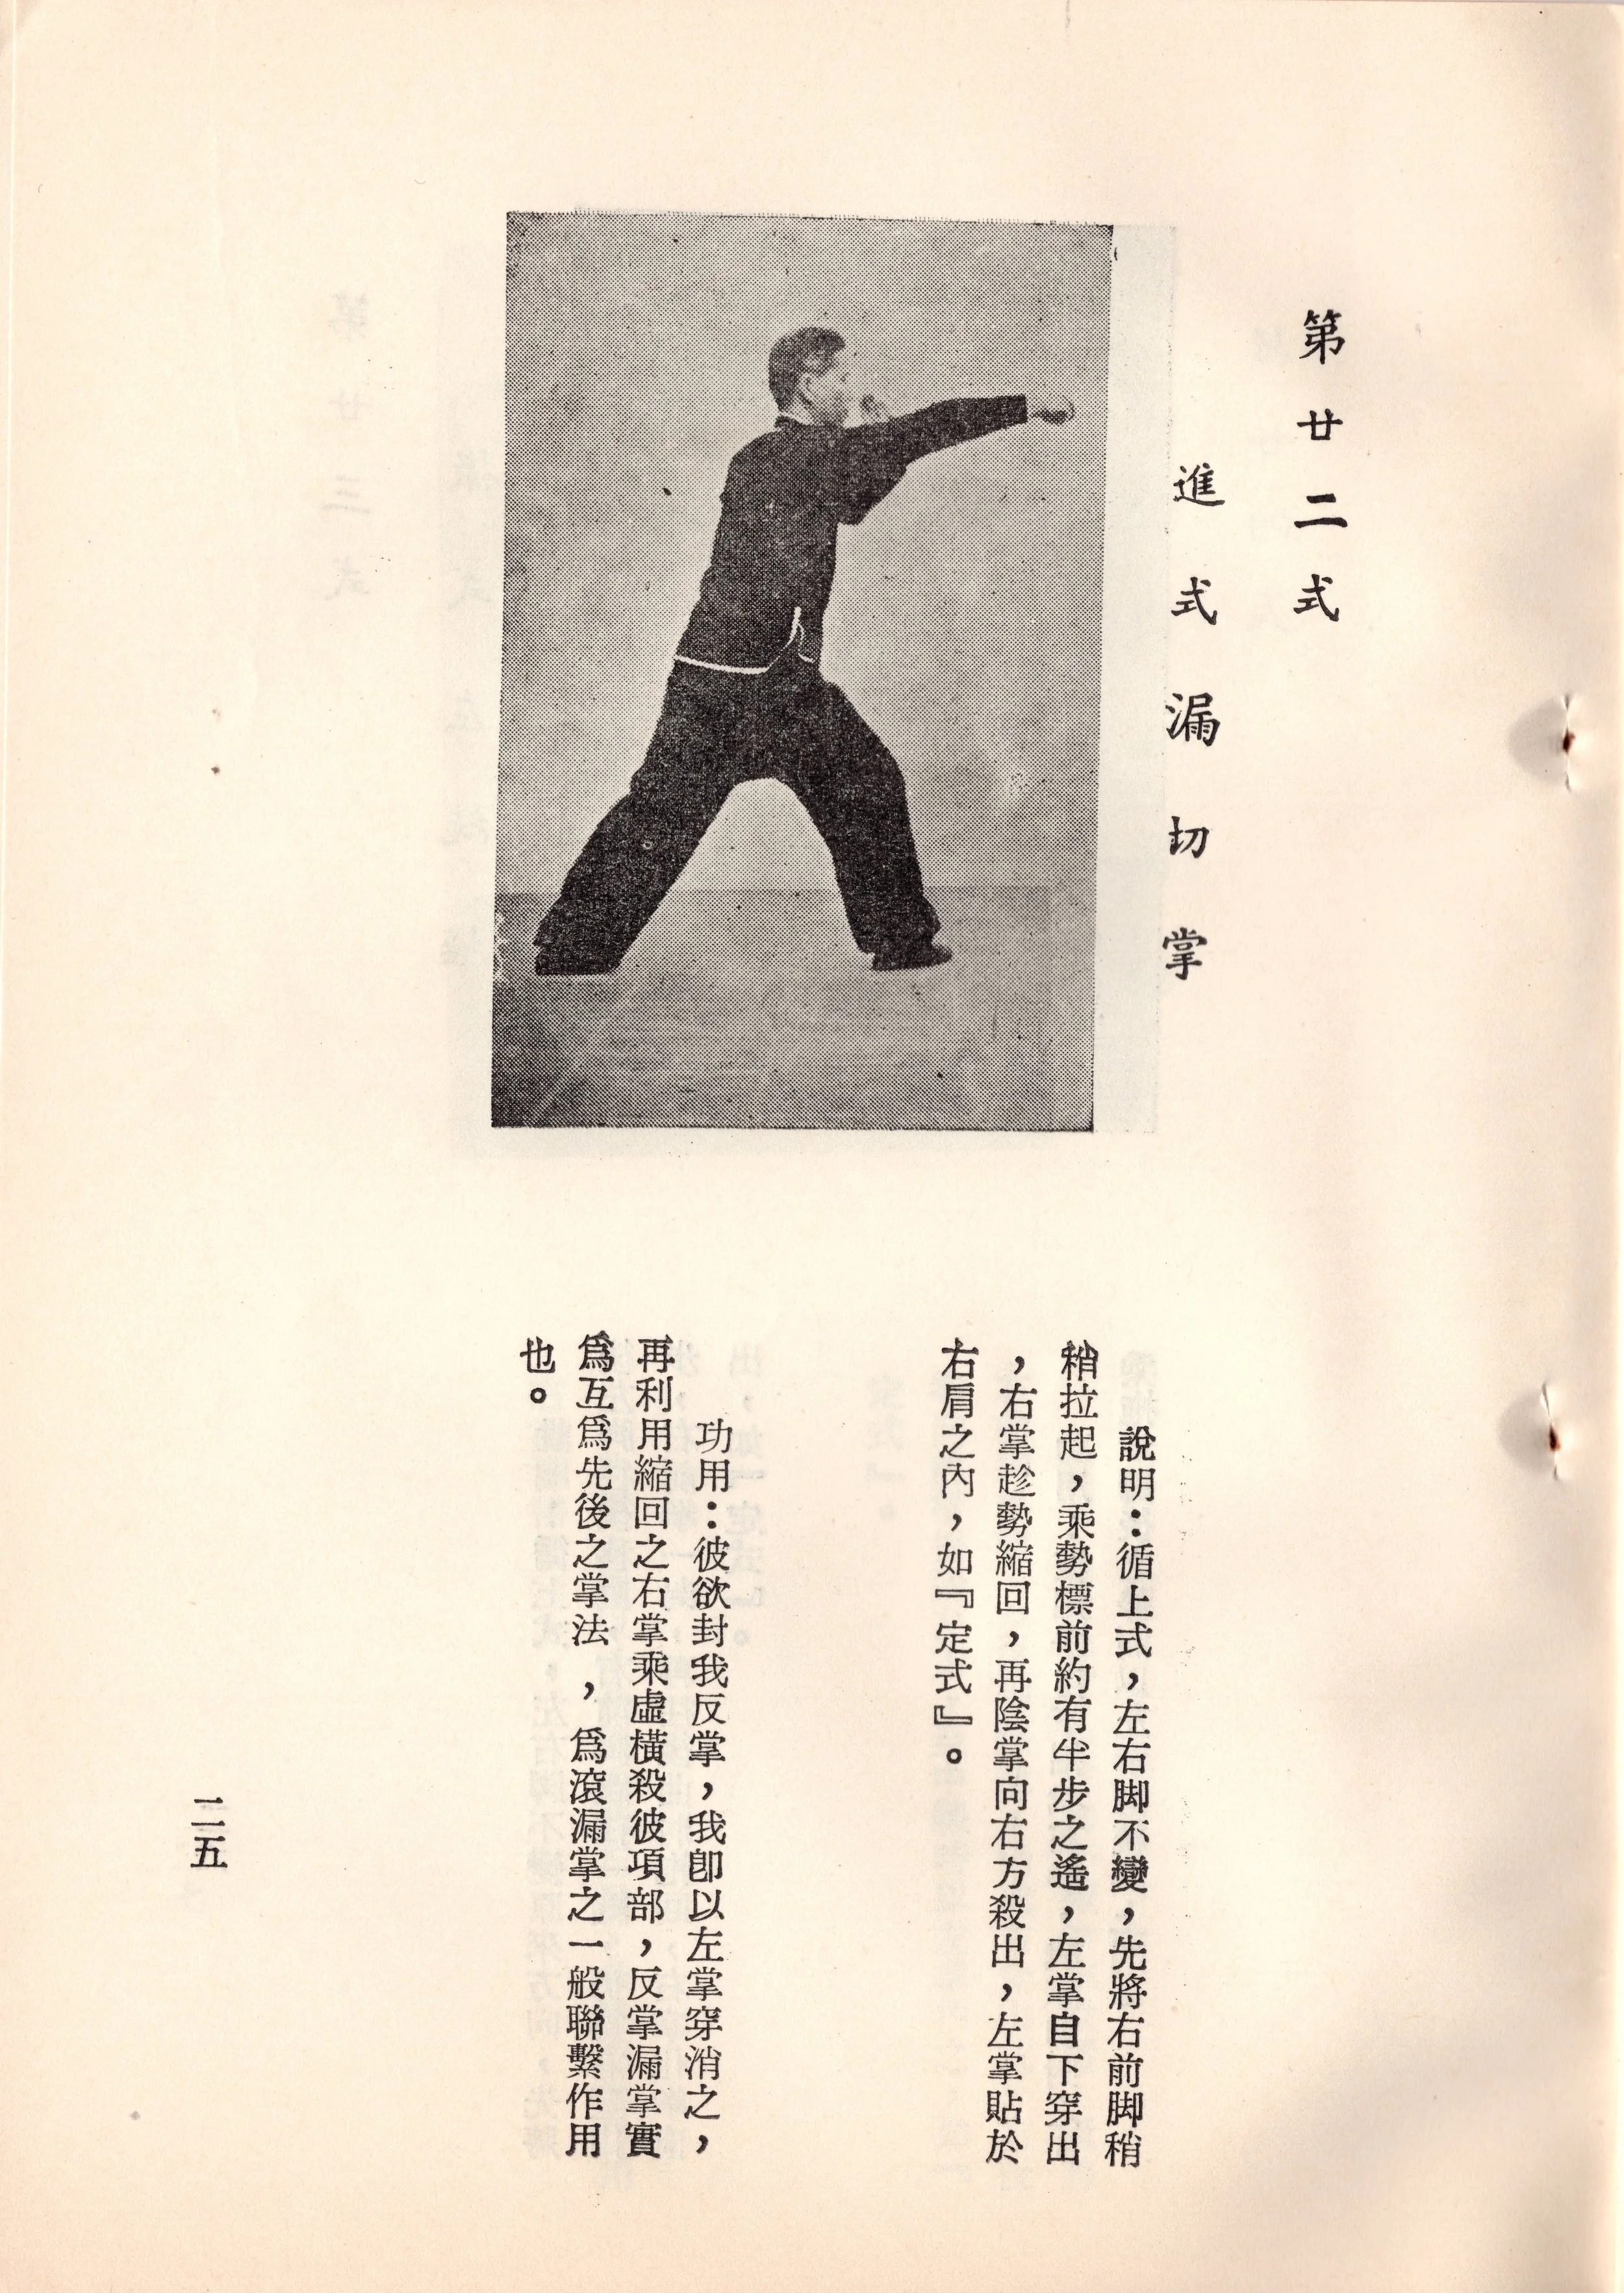 第廿二式
進式漏切掌
說明：循上式，左右脚不變，先將右前脚稍
稍拉起，乘勢標前約有半步之遙，左掌自下穿出
，右掌趁勢縮回，再陰掌向右方殺出，左掌貼於
右肩之內，如『定式』。
功用：彼欲封我反掌，我卽以左掌穿消之，
再利用縮回之右掌乘虛橫殺彼項部，反掌漏掌實
爲互爲先後之掌法，爲滾漏掌之一般聯繫作用
也。
二五